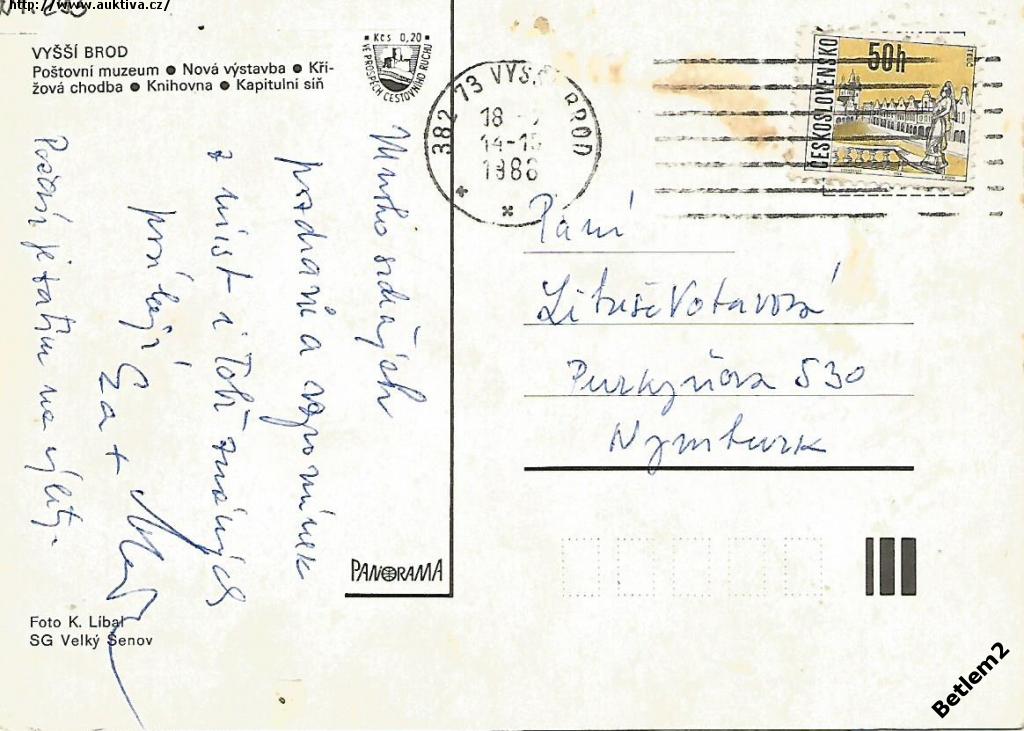 http://www.auktiva.cz/
VYŠŠÍ BROD
Poštovní muzeum ● Nová výstavba ● Kří-
žová chodba ● Knihovna ● Kapitulní síň
Kčs 0,20
VE PROSPĚCH CESTOVNÍHO RUCHU
382 73 VYŠŠÍ BROD
18
14-15
1986
ČESKOSLOVENSKO
50h
Mnoho srdečných
pozdravů a vzpomínek
z míst i Tobě známých
posílají
Eva +
Počasí je zatím na výlety.
Paní
Libuše Votavová
Purkyňova 530
Nymburk
PANORAMA
Foto K. Libal
SG Velký Šenov
Betlem2